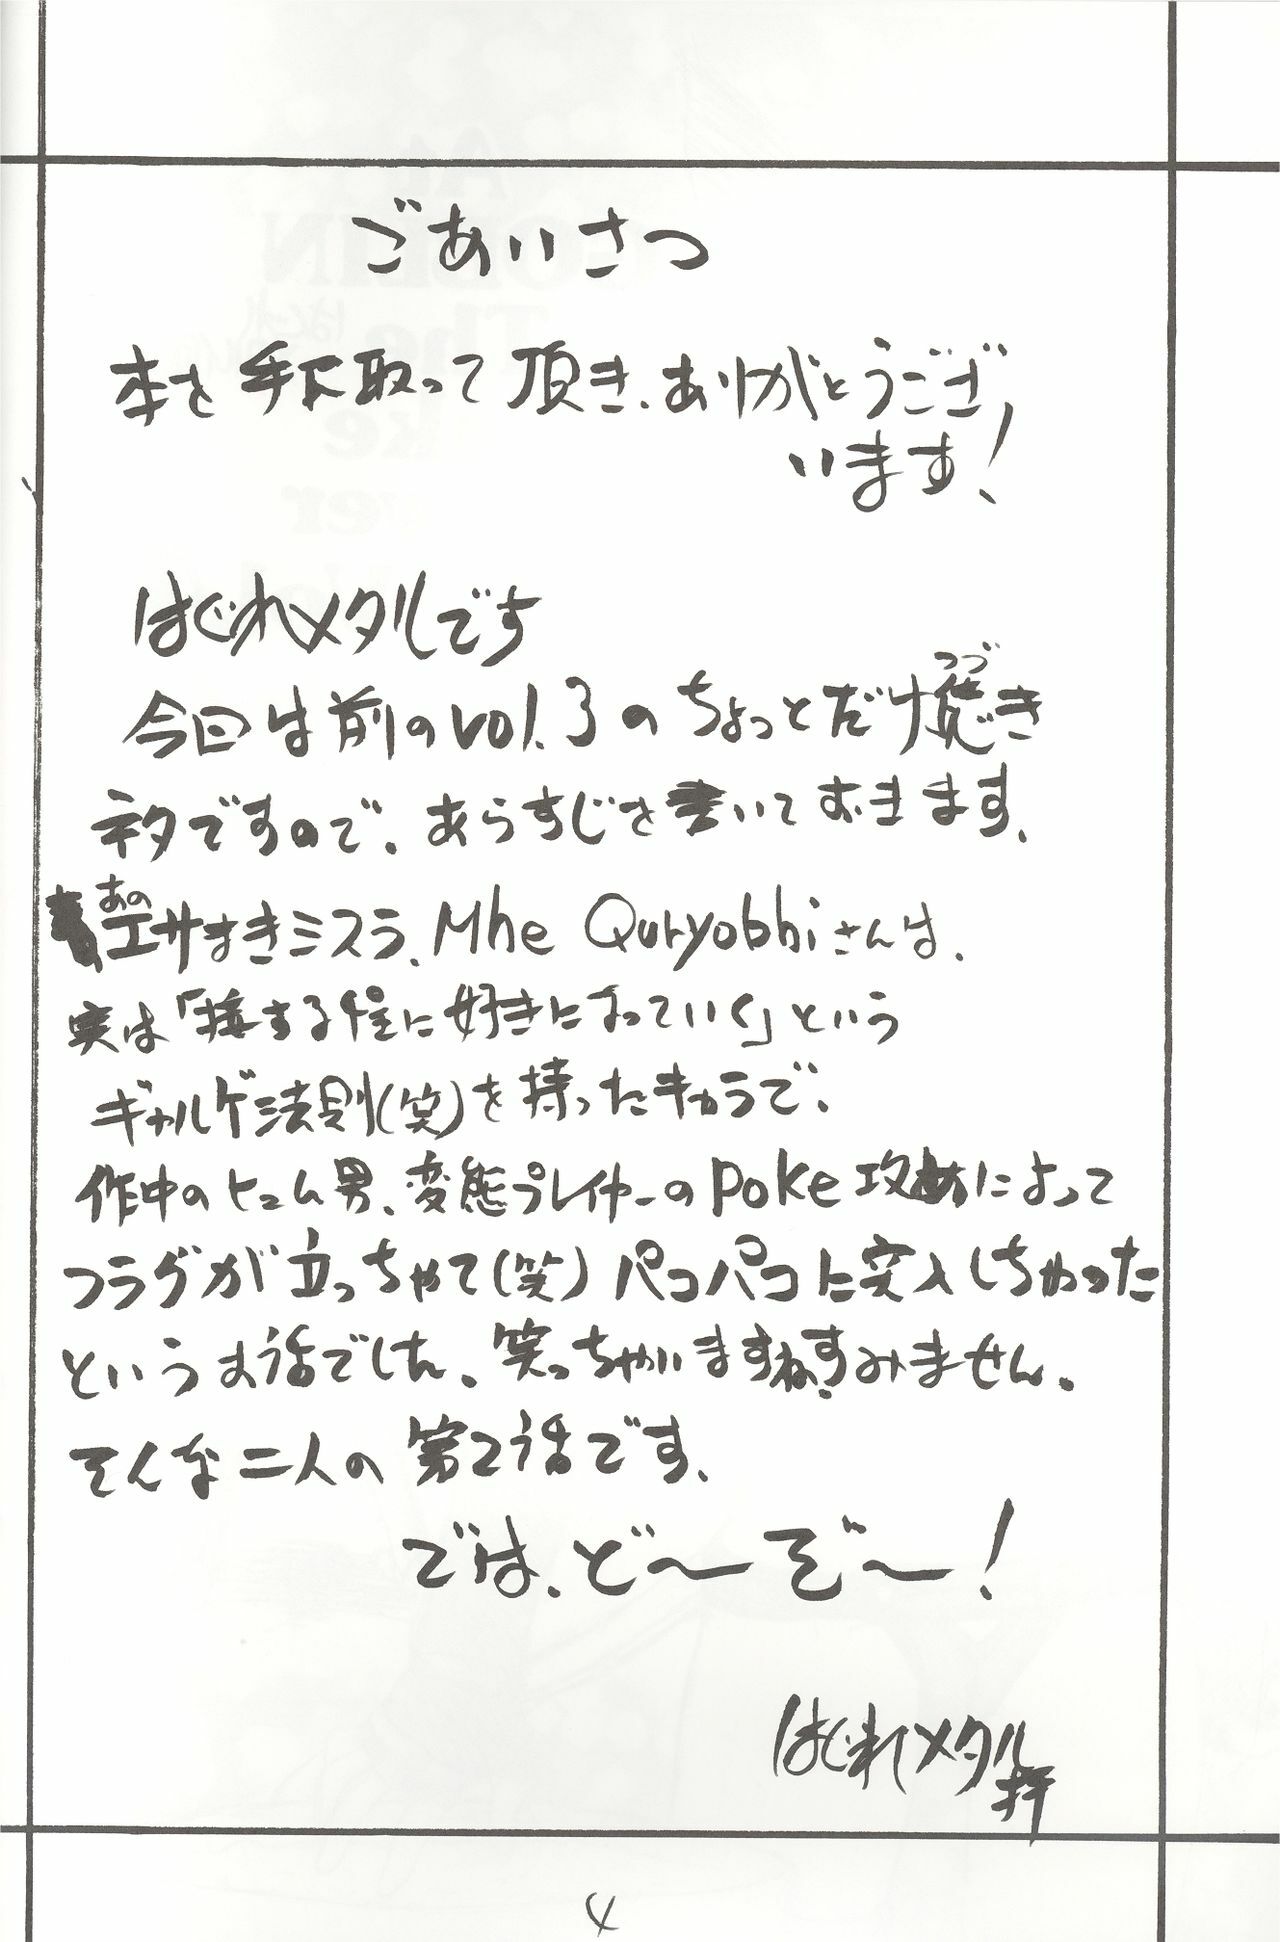 ごあいさつ
本を手に取って頂き、ありがとうござ
います!
はぐれメタルでち
今回は前のvol.3のちょっとだけ続き
つづ
ネタですので、あらすじを書いておきます。
あの
エサすきミスラ、Mhe Quryobhiさんは、
実は「接する程に好きになっていく」という
ギャルゲ法則(笑)を持ったキャラで、
作中のヒュム男、変態プレイヤーのpoke攻めによって
フラグが立っちゃて(笑)パコパコに突入しちゃった
というお話でした、笑っちゃいますね。すみません。
そんな二人の第2話です。
では、ど〜ぞ〜!
はぐれメタル拝
4